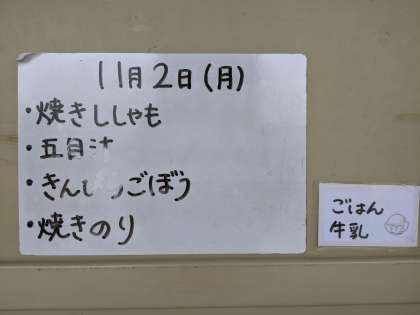 11月2日(月)
・焼きししゃも
・五目汁
・きんぴらごぼう
・焼きのり
ごはん
牛乳